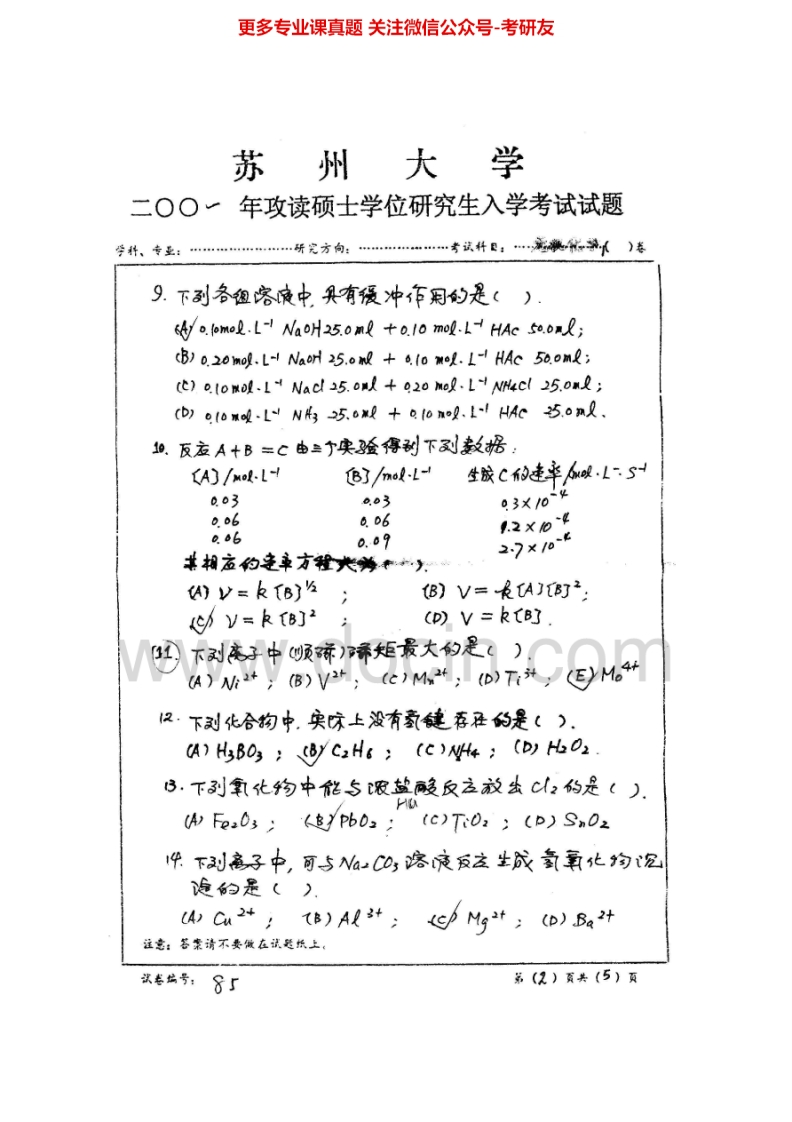 更多专业课真题 关注微信公众号-考研友
苏 州 大 学
二〇〇一 年攻读硕士学位研究生入学考试试题
学科、专业: ……………………研究方向: …………………考试科目: …… )卷
9. 下列各组溶液中,具有缓冲作用的是( ).
(A) 0.10mol.L-1 NaOH 25.0ml + 0.10 mol.L-1 HAc 50.0ml;
(B) 0.20mol.L-1 NaOH 25.0ml + 0.10 mol.L-1 HAc 50.0ml;
(C) 0.10mol.L-1 NaCl 25.0ml + 0.20 mol.L-1 NH4Cl 25.0ml;
(D) 0.10mol.L-1 NH3 25.0ml + 0.10 mol.L-1 HAc 25.0ml.
10. 反应 A+B = C 由三个实验得到下列数据:
[A]/mol.L-1 [B]/mol.L-1 生成C的速率/mol.L-.S-1
0.03 0.03 0.3×10-4
0.06 0.06 1.2×10-4
0.06 0.09 2.7×10-4
其相应的速率方程式为( ).
(A) V = k[B]1/2 ; (B) V = k[A][B]2;
(C) V = k[B]2 ; (D) V = k[B].
11. 下列离子中(顺磁)磁矩最大的是( )
(A) Ni2+; (B) V2+; (C) Mn2+; (D) Ti3+; (E) Mo4+
www.docin.com
12. 下列化合物中,实际上没有氢键存在的是( ).
(A) H3BO3 ; (B) C2H6 ; (C) NH4 ; (D) H2O2.
13. 下列氧化物中能与浓盐酸反应放出Cl2的是( ).
(A) Fe2O3 ; (B) PbO2 ; (C) TiO2 ; (D) SnO2
14. 下列离子中,可与Na2CO3溶液反应生成氢氧化物沉
淀的是( ).
(A) Cu2+ ; (B) Al3+ ; (C) Mg2+ ; (D) Ba2+
注意: 答案请不要做在试题纸上.
试卷编号: 85 第(2)页共(5)页